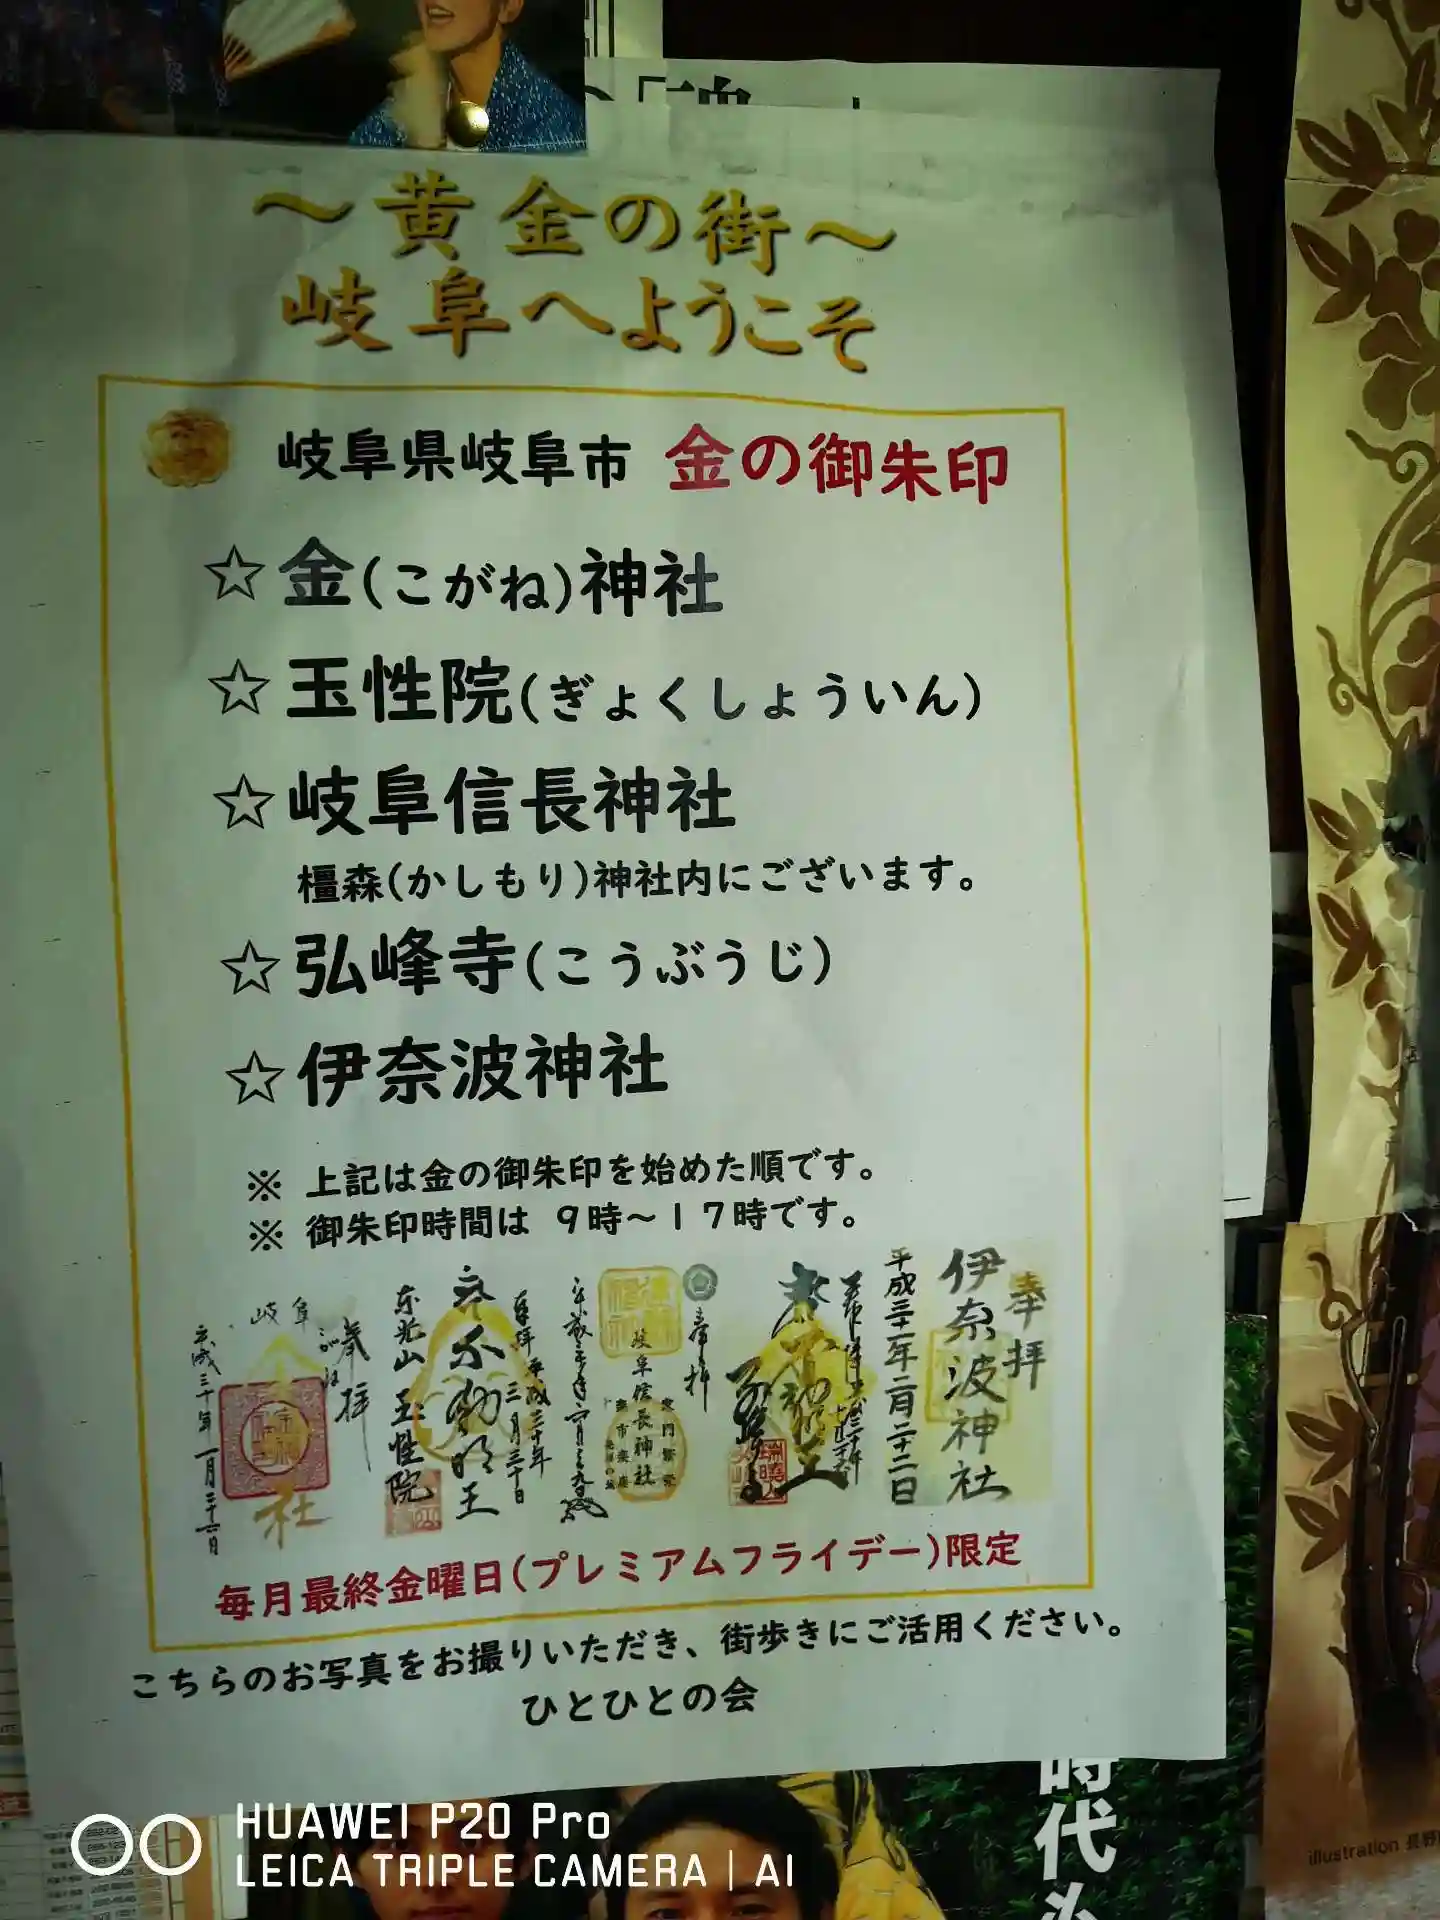 ～黄金の街～
岐阜へようこそ
岐阜県岐阜市 金の御朱印
☆金(こがね)神社
☆玉性院(ぎょくしょういん)
☆岐阜信長神社
橿森(かしもり)神社内にございます。
☆弘峰寺(こうぶうじ)
☆伊奈波神社
※ 上記は金の御朱印を始めた順です。
※ 御朱印時間は 9時～17時です。
奉拝
伊奈波神社
平成三十一年二月二十二日
奉拝
岐阜信長神社
奉拝 平成三十年三月三十日
玉性院
岐阜
奉拝
社
平成三十年一月二十六日
毎月最終金曜日(プレミアムフライデー)限定
こちらのお写真をお撮りいただき、街歩きにご活用ください。
ひとひとの会
時代
illustration
HUAWEI P20 Pro
LEICA TRIPLE CAMERA | AI